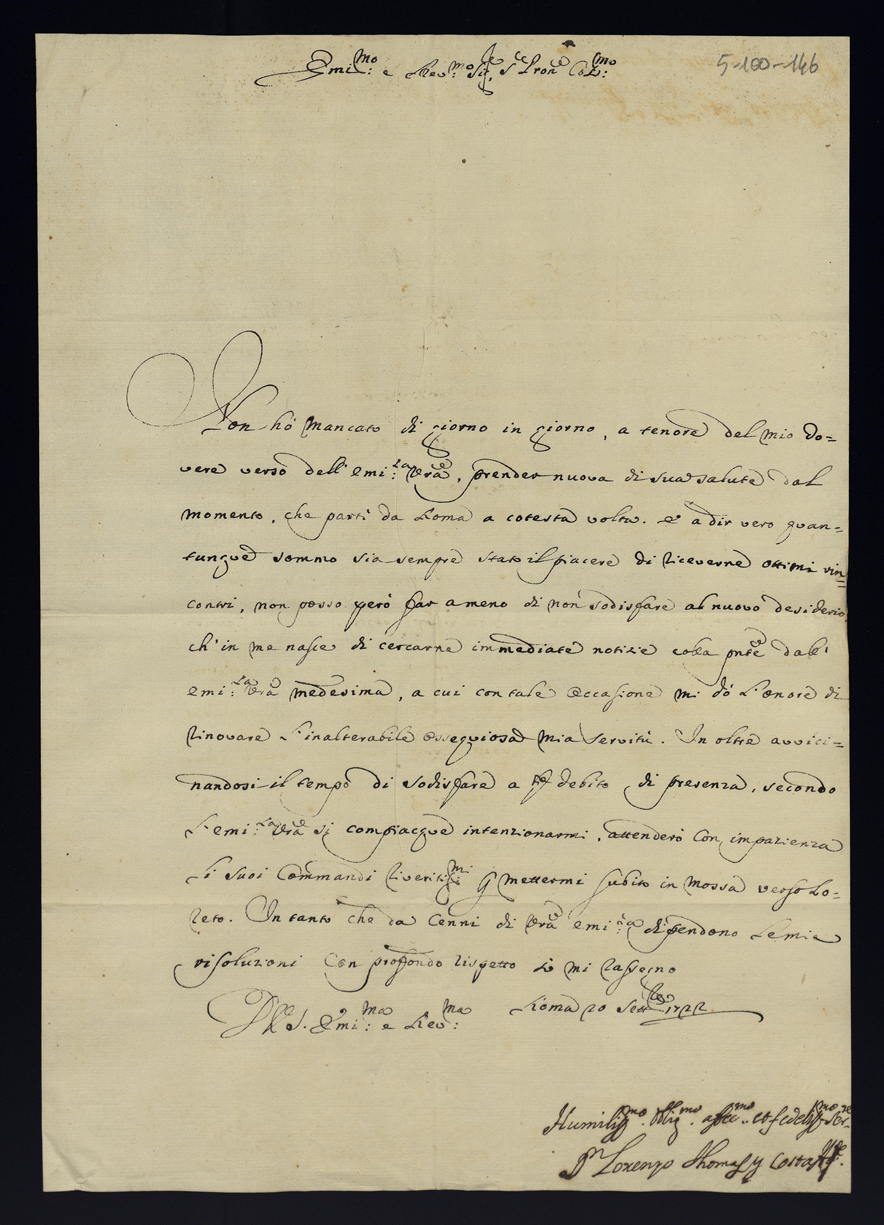 Emi.mo e Rev.mo Sig.re S.re Pron.e Col.mo
5-100-146
Non hò mancato di giorno in giorno, a tenore del mio do=
vere verso dell'emi.za Vrã, prender nuova di sua salute dal
momento, che partì da Roma a cotesta volta. e a dir vero quan=
tunque sommo sia sempre stato il piacere di riceverne ottimi rin=
contri, non posso però far a meno di non sodisfare al nuovo desiderio,
ch'in me nasce di cercarne immediate notizie colla pnte dall'
emi.za Vrã medesima, a cui con tale occasione mi dò l'onore di
rinovare l'inalterabile ossequiosa mia servitù. In oltre avvici=
nandosi il tempo di sodisfare a debito di presenza, secondo
l'emi.za Vrã si compiacque intenzionarmi, attenderò con impazienza
li suoi Commandi riveritis.mi p mettermi subito in mossa verso Lo=
reto. In tanto che da Cenni di Vrã emi.za dipendono le mie
risoluzioni Con profondo rispetto io mi rassegno
D V. Emi.ma e Rev.ma Roma 20 Sett.re 1722
Humilis.mo Oblig.mo aff.mo et fedelis.mo Ser.re
Lorenzo Thomas y Costa